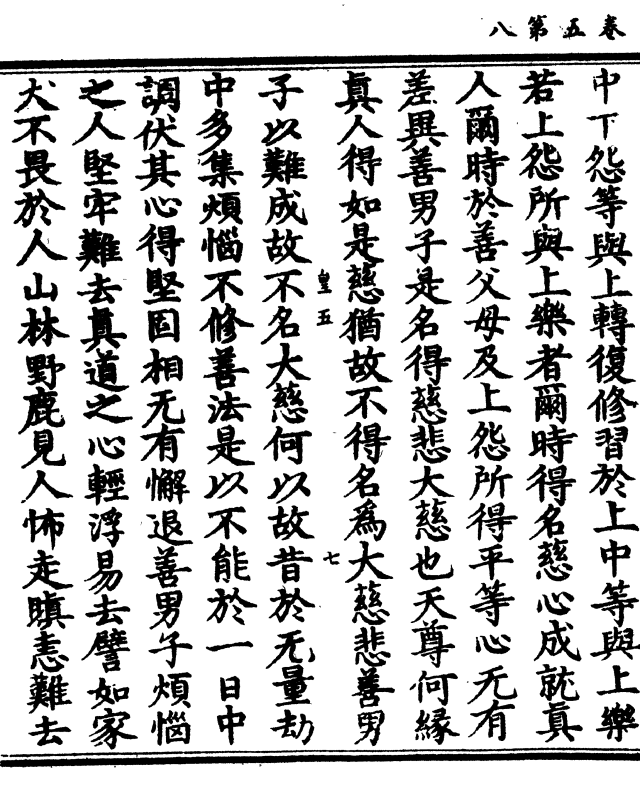 卷五第八
中下怨等與上轉復修習於上中等與上樂
若上怨所與上樂者爾時得名慈心成就真
人爾時於善父母及上怨所得平等心无有
差異善男子是名得慈悲大慈也天尊何緣
真人得如是慈猶故不得名為大慈悲善男
皇五
七
子以難成故不名大慈何以故昔於无量劫
中多集煩惱不修善法是以不能於一日中
調伏其心得堅固相无有懈退善男子煩惱
之人堅牢難去真道之心輕浮易去譬如家
犬不畏於人山林野鹿見人怖走瞋恚難去